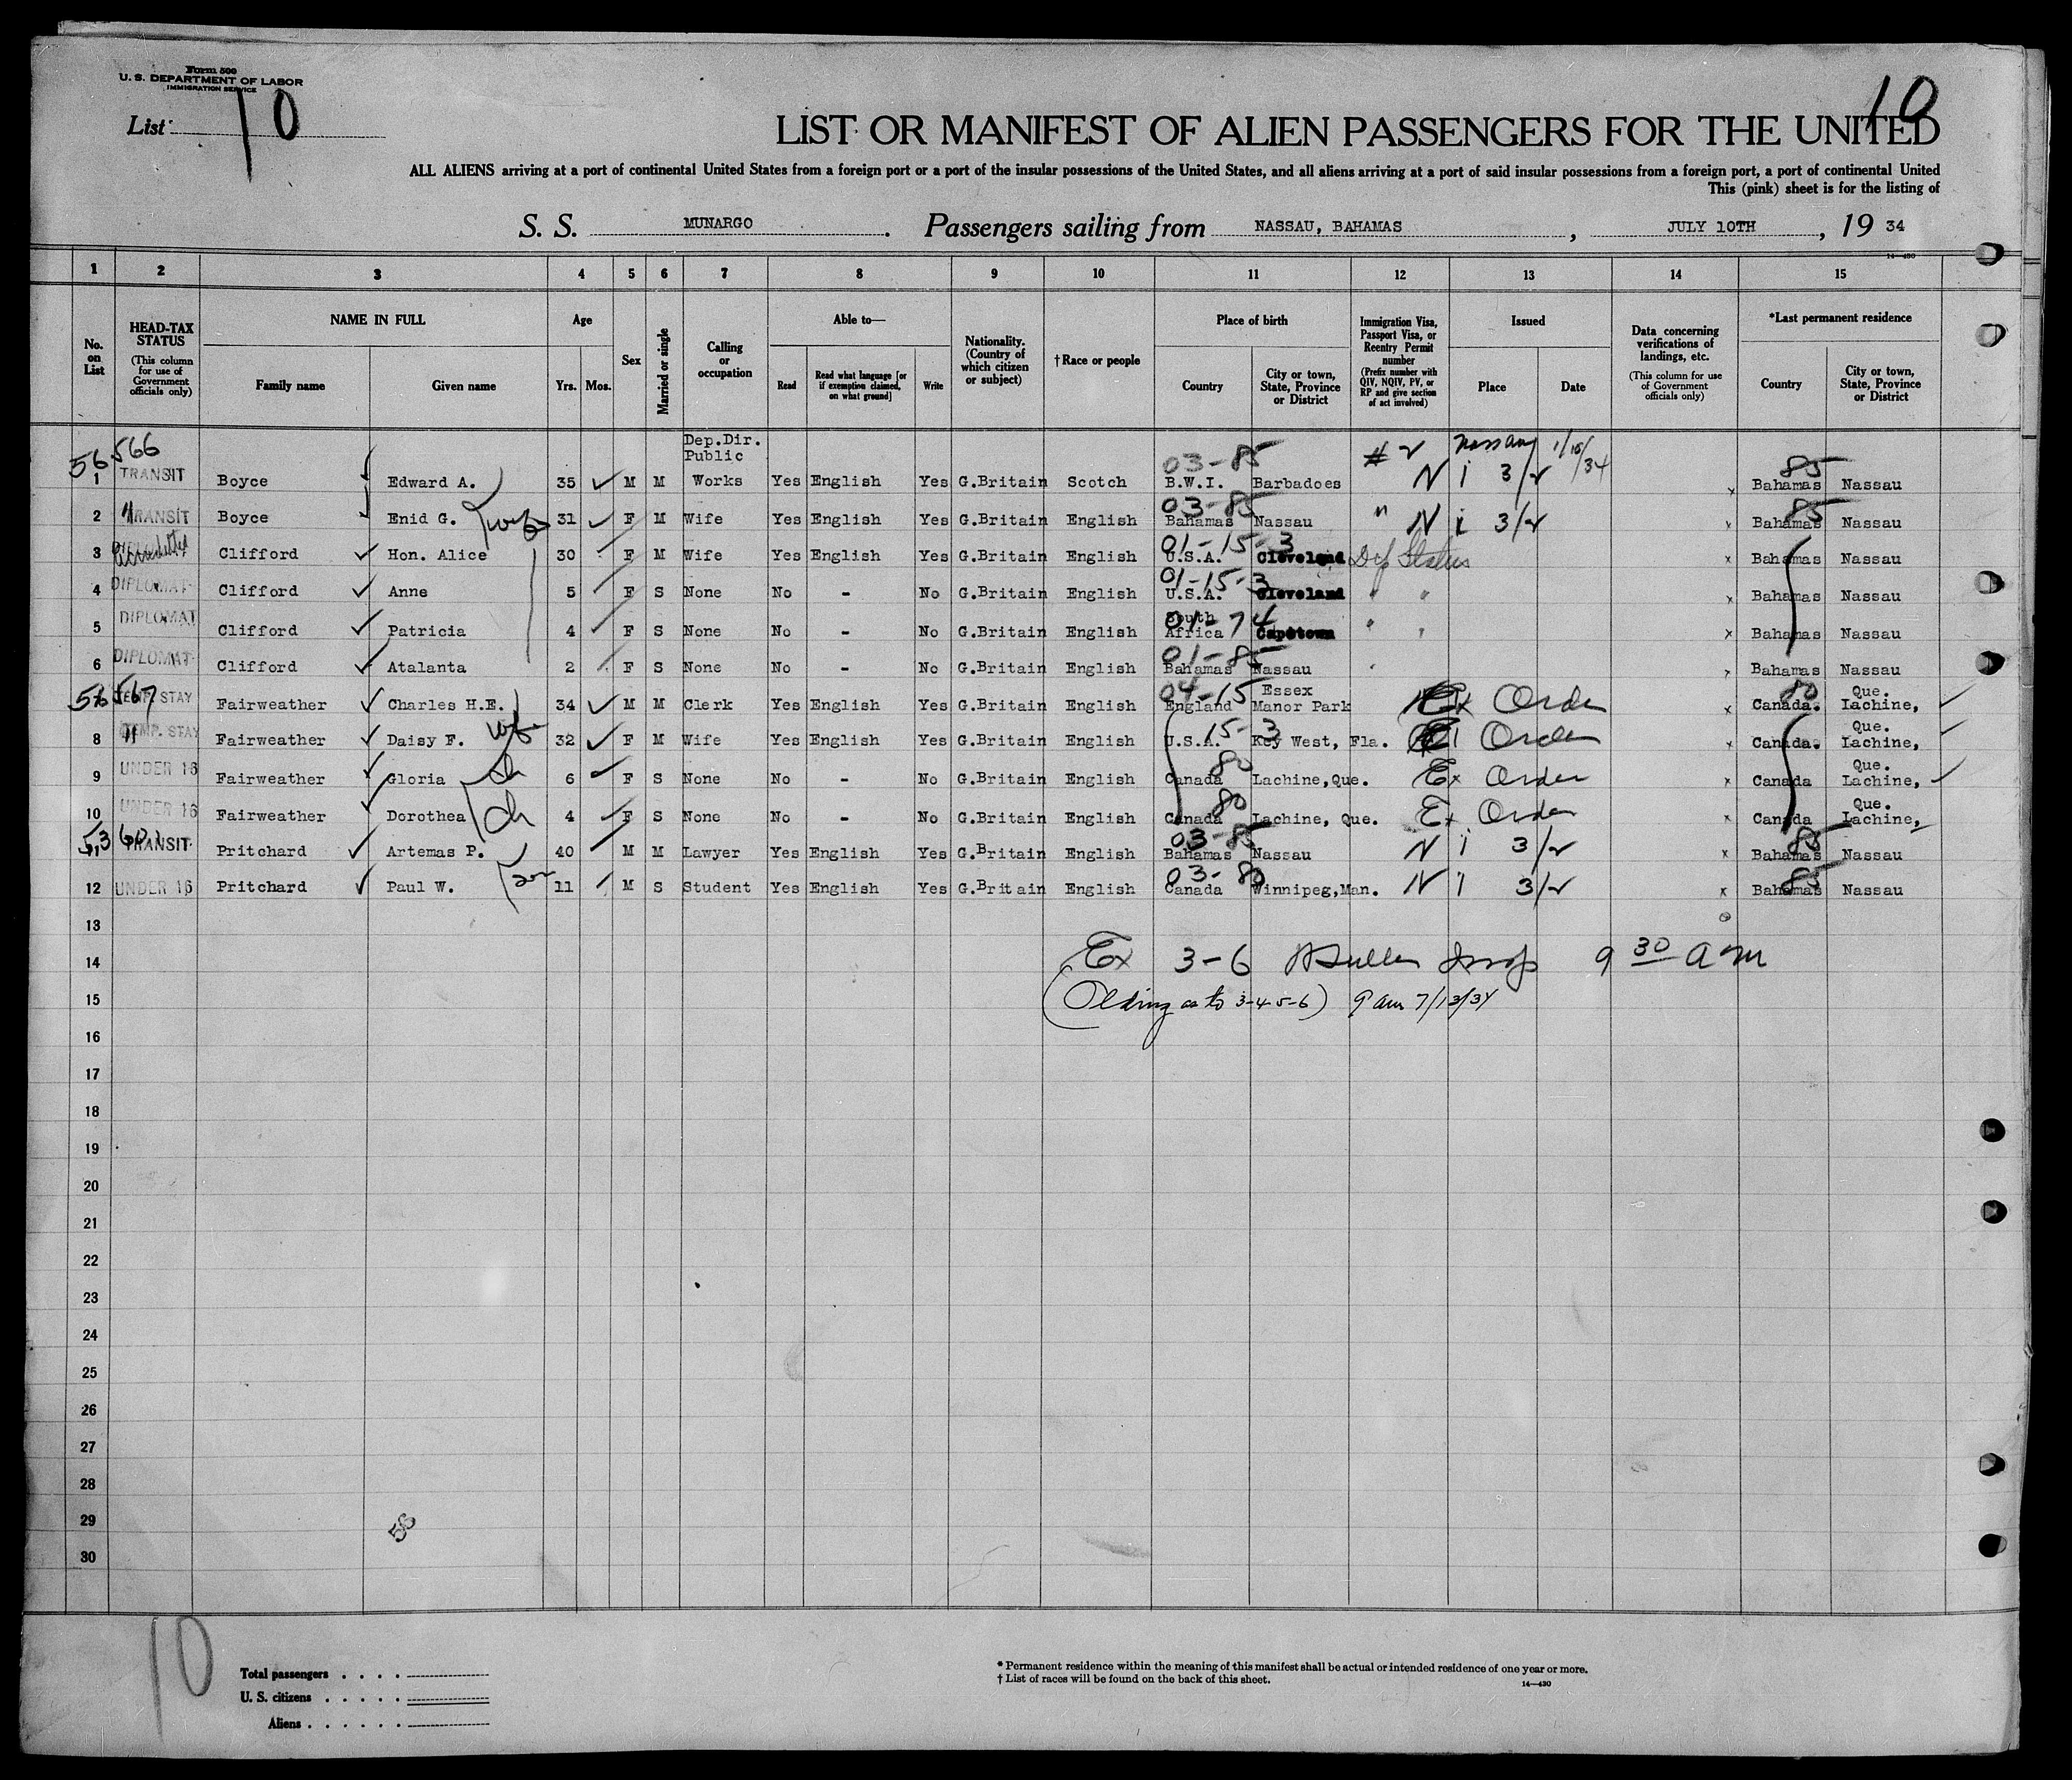 Form 500
U. S. DEPARTMENT OF LABOR
IMMIGRATION SERVICE
List 10
10
LIST OR MANIFEST OF ALIEN PASSENGERS FOR THE UNITED
ALL ALIENS arriving at a port of continental United States from a foreign port or a port of the insular possessions of the United States, and all aliens arriving at a port of said insular possessions from a foreign port, a port of continental United
This (pink) sheet is for the listing of
S. S. MUNARGO. Passengers sailing from NASSAU, BAHAMAS, JULY 10TH, 19 34
14—430
1 2 3 4 5 6 7 8 9 10 11 12 13 14 15
No. on List
HEAD-TAX STATUS (This column for use of Government officials only)
NAME IN FULL Family name Given name
Age Yrs. Mos.
Sex
Married or single
Calling or occupation
Able to— Read Read what language [or if exemption claimed, on what ground] Write
Nationality. (Country of which citizen or subject)
†Race or people
Place of birth Country City or town, State, Province or District
Immigration Visa, Passport Visa, or Reentry Permit number (Prefix number with QIV, NQIV, PV, or RP and give section of act involved)
Issued Place Date
Data concerning verifications of landings, etc. (This column for use of Government officials only)
*Last permanent residence Country City or town, State, Province or District
56 566 Dep.Dir. Public 03-85 # 2 Nassau 1/15/34 85
1 TRANSIT Boyce Edward A. 35 M M Works Yes English Yes G.Britain Scotch B.W.I. Barbadoes N i 3/2 x Bahamas Nassau
2 " TRANSIT Boyce Enid G. wf 31 F M Wife Yes English Yes G.Britain English 03-85 Bahamas Nassau " N i 3/2 x 85 Bahamas Nassau
3 Clifford Hon. Alice 30 F M Wife Yes English Yes G.Britain English 01-15-3 U.S.A. Cleveland Dip Status x Bahamas Nassau
4 DIPLOMAT Clifford Anne 5 F S None No - No G.Britain English 01-15-3 U.S.A. Cleveland " " x Bahamas Nassau
5 DIPLOMAT Clifford Patricia 4 F S None No - No G.Britain English 01-74 South Africa Capetown " " x Bahamas Nassau
6 DIPLOMAT Clifford Atalanta 2 F S None No - No G.Britain English 01-85 Bahamas Nassau " x Bahamas Nassau
56 567 TEMP. STAY Fairweather Charles H.E. 34 M M Clerk Yes English Yes G.Britain English 04-15 England Essex Manor Park Ex Order x 80 Canada. Que. Lachine,
8 " TEMP. STAY Fairweather Daisy F. wf 32 F M Wife Yes English Yes G.Britain English 15-3 U.S.A. Key West, Fla. Order x Canada. Que. Lachine,
9 UNDER 16 Fairweather Gloria ch 6 F S None No - No G.Britain English 80 Canada Lachine,Que. Ex Order x Canada Que. Lachine,
10 UNDER 16 Fairweather Dorothea ch 4 F S None No - No G.Britain English 80 Canada Lachine, Que. Ex Order x Canada Que. Lachine,
11 TRANSIT Pritchard Artemas P. 40 M M Lawyer Yes English Yes G.Britain English 03-85 Bahamas Nassau N i 3/2 x 85 Bahamas Nassau
12 UNDER 16 Pritchard Paul W. son 11 M S Student Yes English Yes G.Britain English 03-80 Canada Winnipeg,Man. N i 3/2 x 85 Bahamas Nassau
13
14 Ex 3-6 Insp 9 30 am
15 as to 3-4-5-6) 9 am 7/13/34
16
17
18
19
20
21
22
23
24
25
26
27
28
29 56
30
10
Total passengers . . . .
U. S. citizens . . . . .
Aliens . . . . . .
* Permanent residence within the meaning of this manifest shall be actual or intended residence of one year or more.
† List of races will be found on the back of this sheet.
14—430